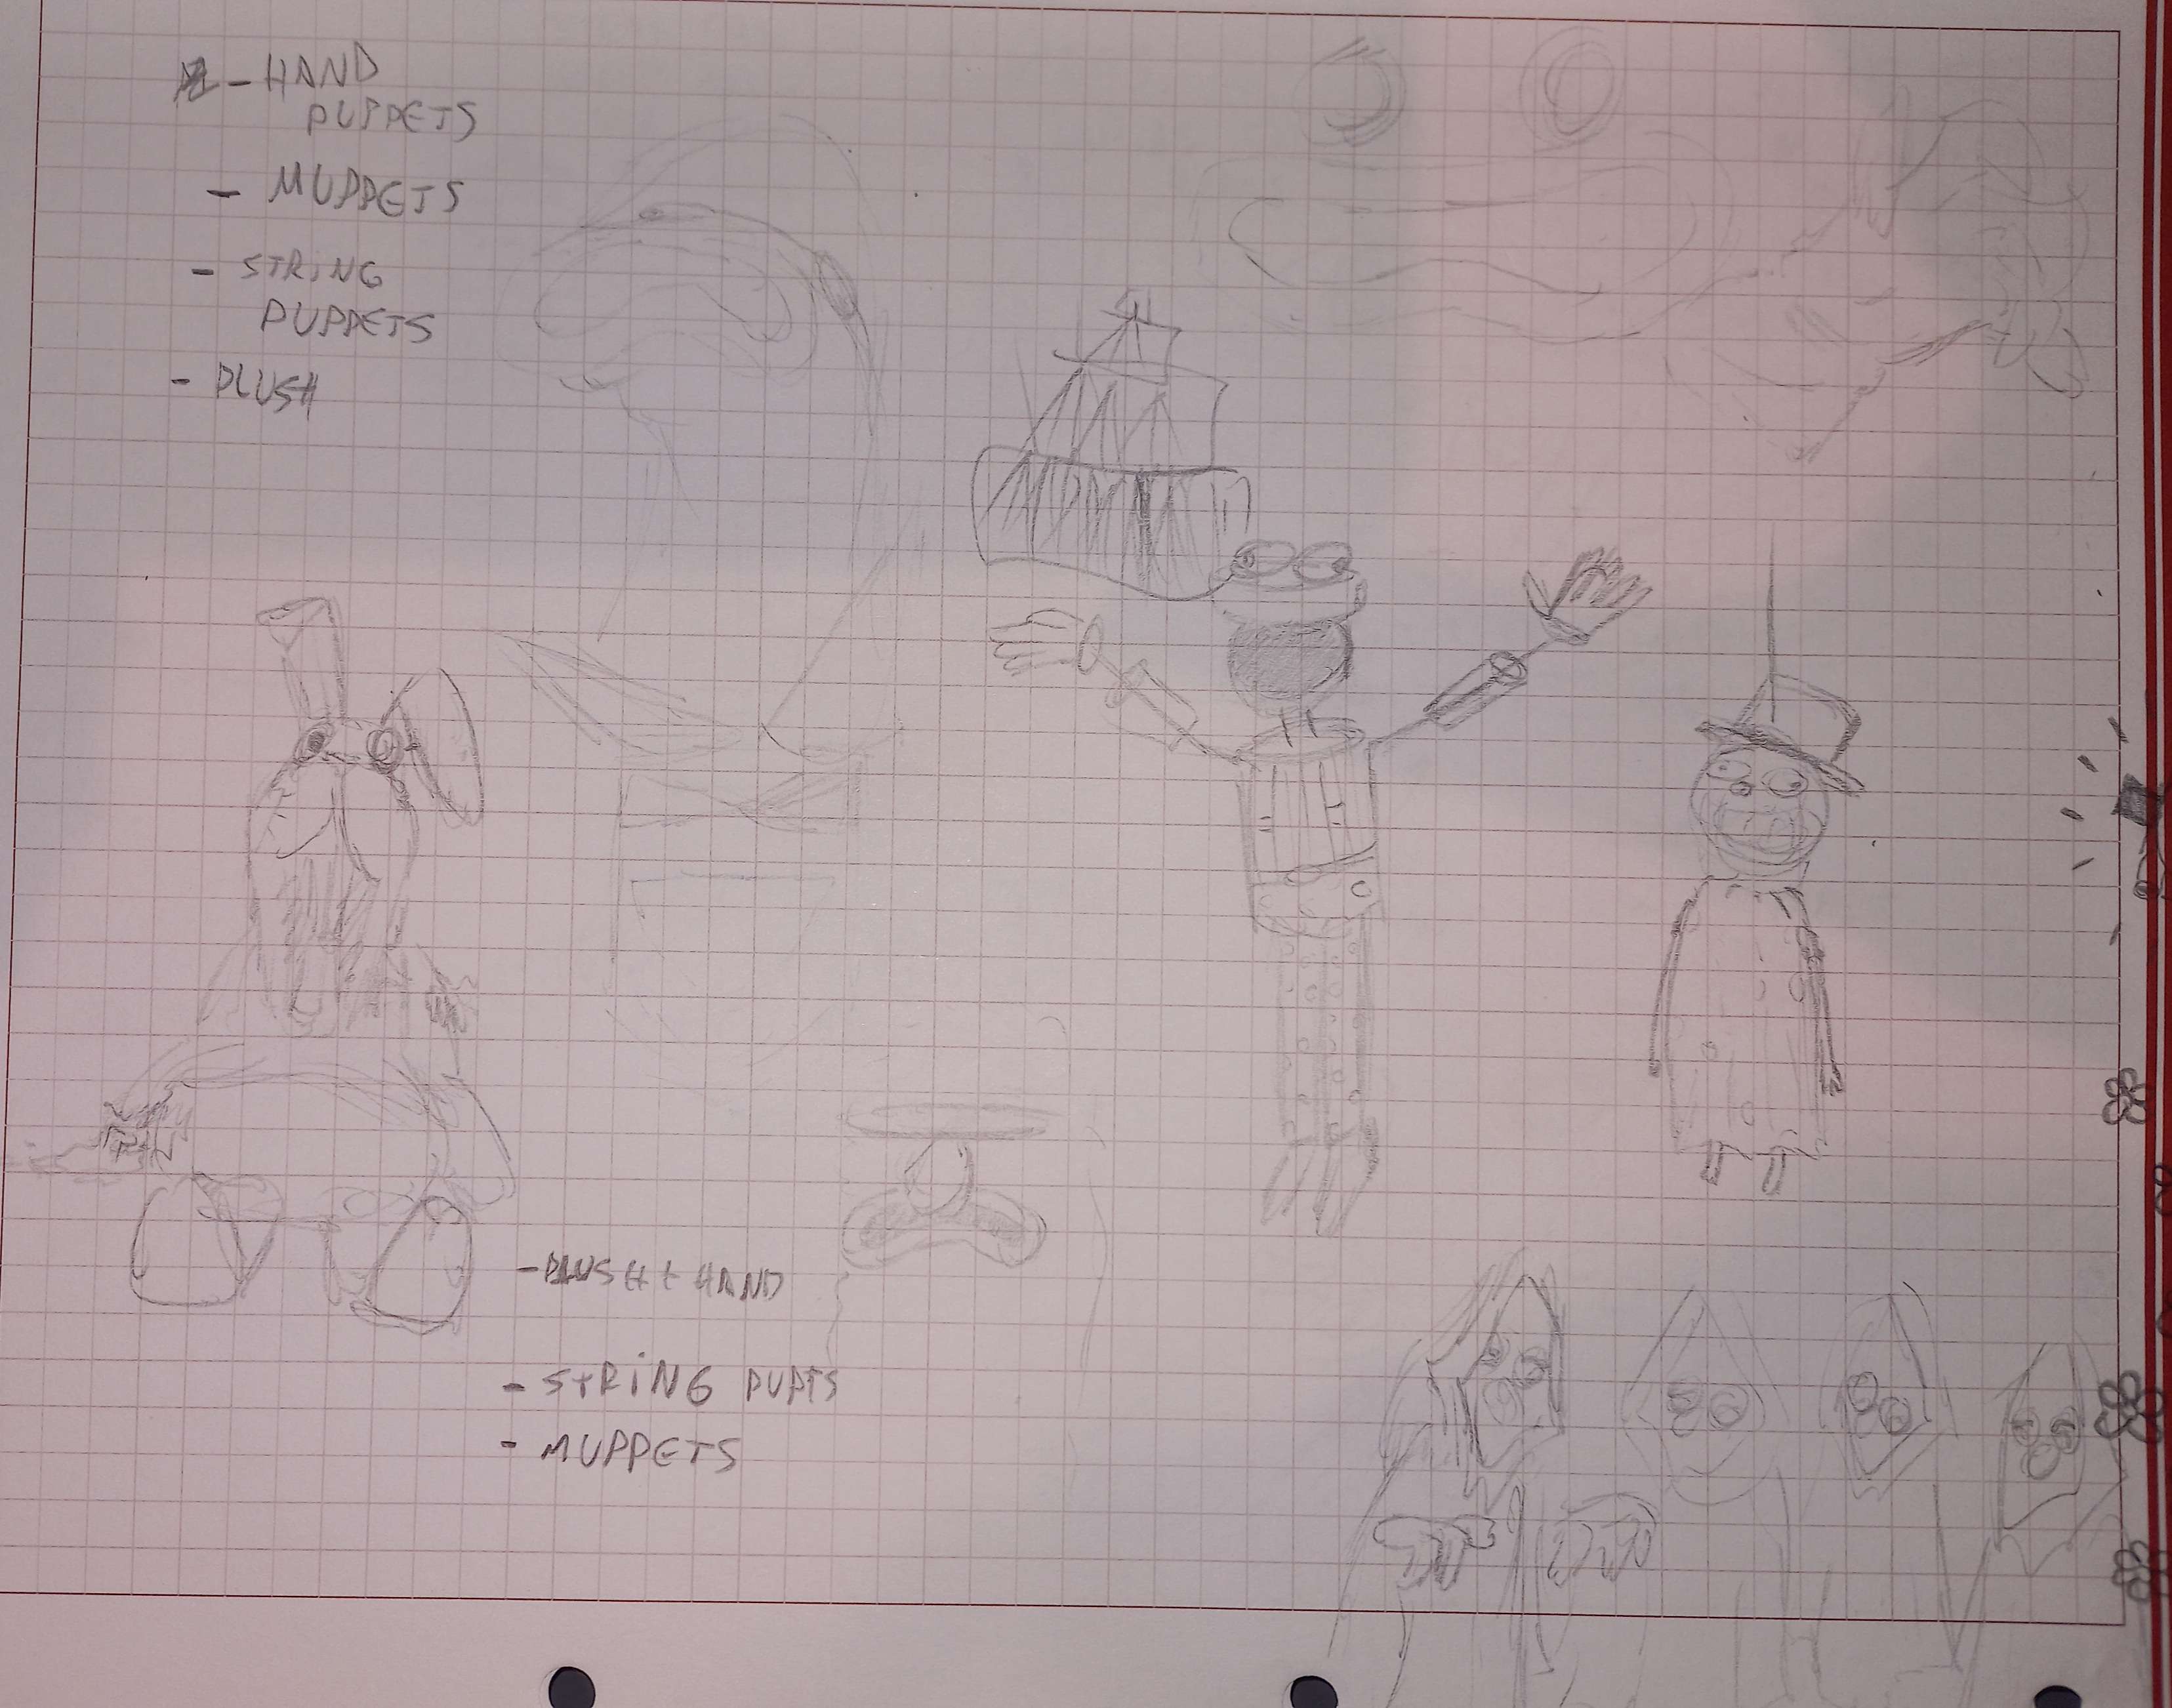 - HAND
PUPPETS
- MUPPETS
- STRING
PUPPETS
- PLUSH
- PLUSH + HAND
- STRING PUPTS
- MUPPETS